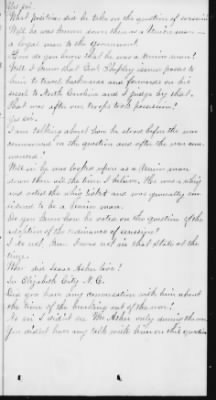 Yes sir.
What position did he take on the question of secession
Well, he was known down there as a Union man —
a loyal man to the government.
How do you know that he was a Union man?
Well I know that Genl giving passes to
him to travel backwards and forwards on his
to North Carolina and I judge by that.
That was after our troops took possession?
Yes sir.
I am talking about how he stood before the war
commenced on the question and after the war com
menced?
Well sir he was looked upon as a Union man
down there all the time I believe. He was a whig
and voted the whig ticket and was generally con
sidered to be a Union man.
Do you know how he voted on the question of the
adoption of the ordinance of secession?
I do not. I was not in that state at the
time.
Where did Isaac live?
In Elizabeth City N.C.
Did you have any conversation with him about
the time of the breaking out of the war?
No sir I didn't see Mr only during the war
You didn't have any talk with him on this question